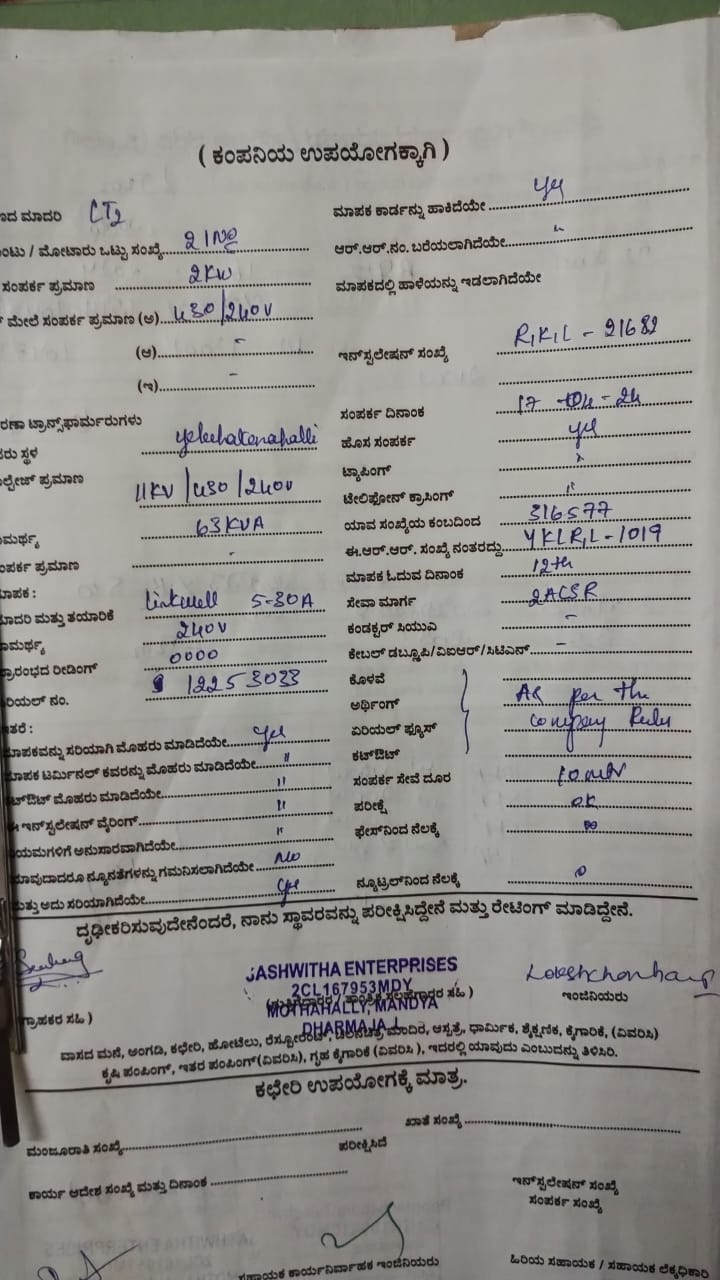 ( ಕಂಪನಿಯ ಉಪಯೋಗಕ್ಕಾಗಿ )
ಮಾದರಿ CT2
ಮಾಪಕ ಕಾರ್ಡನ್ನು ಹಾಕಿದೆಯೇ yes
ಮೋಟಾರು ಒಟ್ಟು ಸಂಖ್ಯೆ 2 1No
ಆರ್.ಆರ್.ನಂ. ಬರೆಯಲಾಗಿದೆಯೇ "
ಸಂಪರ್ಕ ಪ್ರಮಾಣ 2KW
ಮಾಪಕದಲ್ಲಿ ಹಾಳೆಯನ್ನು ಇಡಲಾಗಿದೆಯೇ
ಮೇಲೆ ಸಂಪರ್ಕ ಪ್ರಮಾಣ (ಅ) 430/240V
(ಆ) -
ಇನ್‌ಸ್ಟಲೇಷನ್ ಸಂಖ್ಯೆ R,K,L - 21682
(ಇ) -
ಟ್ರಾನ್ಸ್‌ಫಾರ್ಮರುಗಳು
ಸಂಪರ್ಕ ದಿನಾಂಕ 17-04-24
ಸ್ಥಳ yelechakanahalli
ಹೊಸ ಸಂಪರ್ಕ yes
ಪ್ರಮಾಣ 11KV/430/240V
ಟ್ಯಾಪಿಂಗ್ x
ಟೆಲಿಫೋನ್ ಕ್ರಾಸಿಂಗ್ "
63KVA
ಯಾವ ಸಂಖ್ಯೆಯ ಕಂಬದಿಂದ 316577
ಈ.ಆರ್.ಆರ್. ಸಂಖ್ಯೆ ನಂತರದ್ದು YKLR,L-1019
ಪ್ರಮಾಣ -
ಮಾಪಕ ಓದುವ ದಿನಾಂಕ 12th
ಮತ್ತು ತಯಾರಿಕೆ Linkwell 5-30A
ಸೇವಾ ಮಾರ್ಗ 2ACSR
240V
ಕಂಡಕ್ಟರ್ ಸಿಯುಎ -
ರೀಡಿಂಗ್ 0000
ಕೇಬಲ್ ಡಬ್ಲೂಪಿ/ವಿಐಆರ್/ಸಿಟಿಎಸ್ -
ನಂ. 12253033
ಕೊಳವೆ
ಅರ್ಥಿಂಗ್ As per the
ಏರಿಯಲ್ ಫ್ಯೂಸ್ company Rules
ಸರಿಯಾಗಿ ಮೊಹರು ಮಾಡಿದೆಯೇ yes
ಟರ್ಮಿನಲ್ ಕವರನ್ನು ಮೊಹರು ಮಾಡಿದೆಯೇ "
ಕಟ್‌ಔಟ್
ಮೊಹರು ಮಾಡಿದೆಯೇ "
ಸಂಪರ್ಕ ಸೇವೆ ದೂರ 10mtr
ಇನ್‌ಸ್ಟಲೇಷನ್ ವೈರಿಂಗ್ "
ಪರೀಕ್ಷೆ OK
ಅನುಸಾರವಾಗಿದೆಯೇ "
ಫೇಸ್‌ನಿಂದ ನೆಲಕ್ಕೆ
ನ್ಯೂನತೆಗಳನ್ನು ಗಮನಿಸಲಾಗಿದೆಯೇ No
ಅದು ಸರಿಯಾಗಿದೆಯೇ yes
ನ್ಯೂಟ್ರಲ್‌ನಿಂದ ನೆಲಕ್ಕೆ 0
ದೃಢೀಕರಿಸುವುದೇನೆಂದರೆ, ನಾನು ಸ್ಥಾವರವನ್ನು ಪರೀಕ್ಷಿಸಿದ್ದೇನೆ ಮತ್ತು ರೇಟಿಂಗ್ ಮಾಡಿದ್ದೇನೆ.
JASHWITHA ENTERPRISES
2CL167953MDY
MOTHAHALLY, MANDYA
DHARMAJA J
ಸಹಿ )
ಇಂಜಿನಿಯರು
ವಾಸದ ಮನೆ, ಅಂಗಡಿ, ಕಛೇರಿ, ಹೋಟೆಲು, ರೆಸ್ಟೋರೆಂಟ್, ಮಂದಿರ, ಆಸ್ಪತ್ರೆ, ಧಾರ್ಮಿಕ, ಶೈಕ್ಷಣಿಕ, ಕೈಗಾರಿಕೆ, (ವಿವರಿಸಿ)
ಕೃಷಿ ಪಂಪಿಂಗ್, ಇತರ ಪಂಪಿಂಗ್(ವಿವರಿಸಿ), ಗೃಹ ಕೈಗಾರಿಕೆ (ವಿವರಿಸಿ ), ಇದರಲ್ಲಿ ಯಾವುದು ಎಂಬುದನ್ನು ತಿಳಿಸಿರಿ.
ಕಛೇರಿ ಉಪಯೋಗಕ್ಕೆ ಮಾತ್ರ.
ಮಂಜೂರಾತಿ ಸಂಖ್ಯೆ
ಖಾತೆ ಸಂಖ್ಯೆ
ಪರೀಕ್ಷಿಸಿದೆ
ಕಾರ್ಯ ಆದೇಶ ಸಂಖ್ಯೆ ಮತ್ತು ದಿನಾಂಕ
ಇನ್‌ಸ್ಟಲೇಷನ್ ಸಂಖ್ಯೆ
ಸಂಪರ್ಕ ಸಂಖ್ಯೆ
ಸಹಾಯಕ ಕಾರ್ಯನಿರ್ವಾಹಕ ಇಂಜಿನಿಯರು
ಹಿರಿಯ ಸಹಾಯಕ / ಸಹಾಯಕ ಲೆಕ್ಕಧಿಕಾರಿ